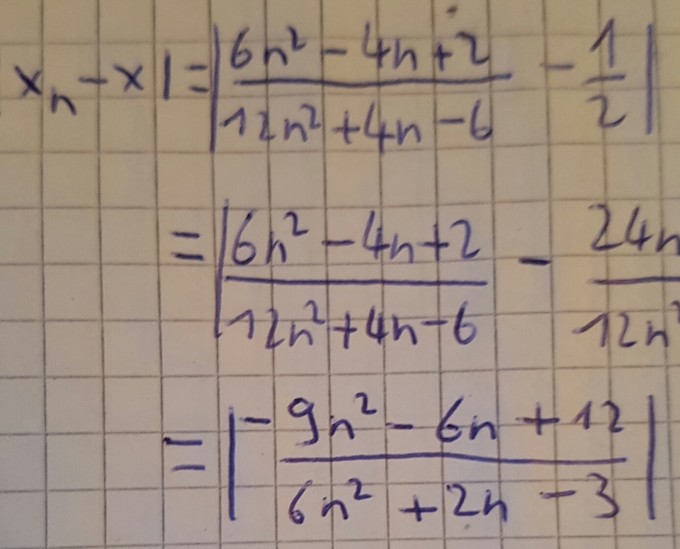 x_n - x| = |(6n² - 4n + 2)/(12n² + 4n - 6) - 1/2|
= |(6n² - 4n + 2)/(12n² + 4n - 6) - 24n/12n²
= |- (9n² - 6n + 12)/(6n² + 2n - 3)|